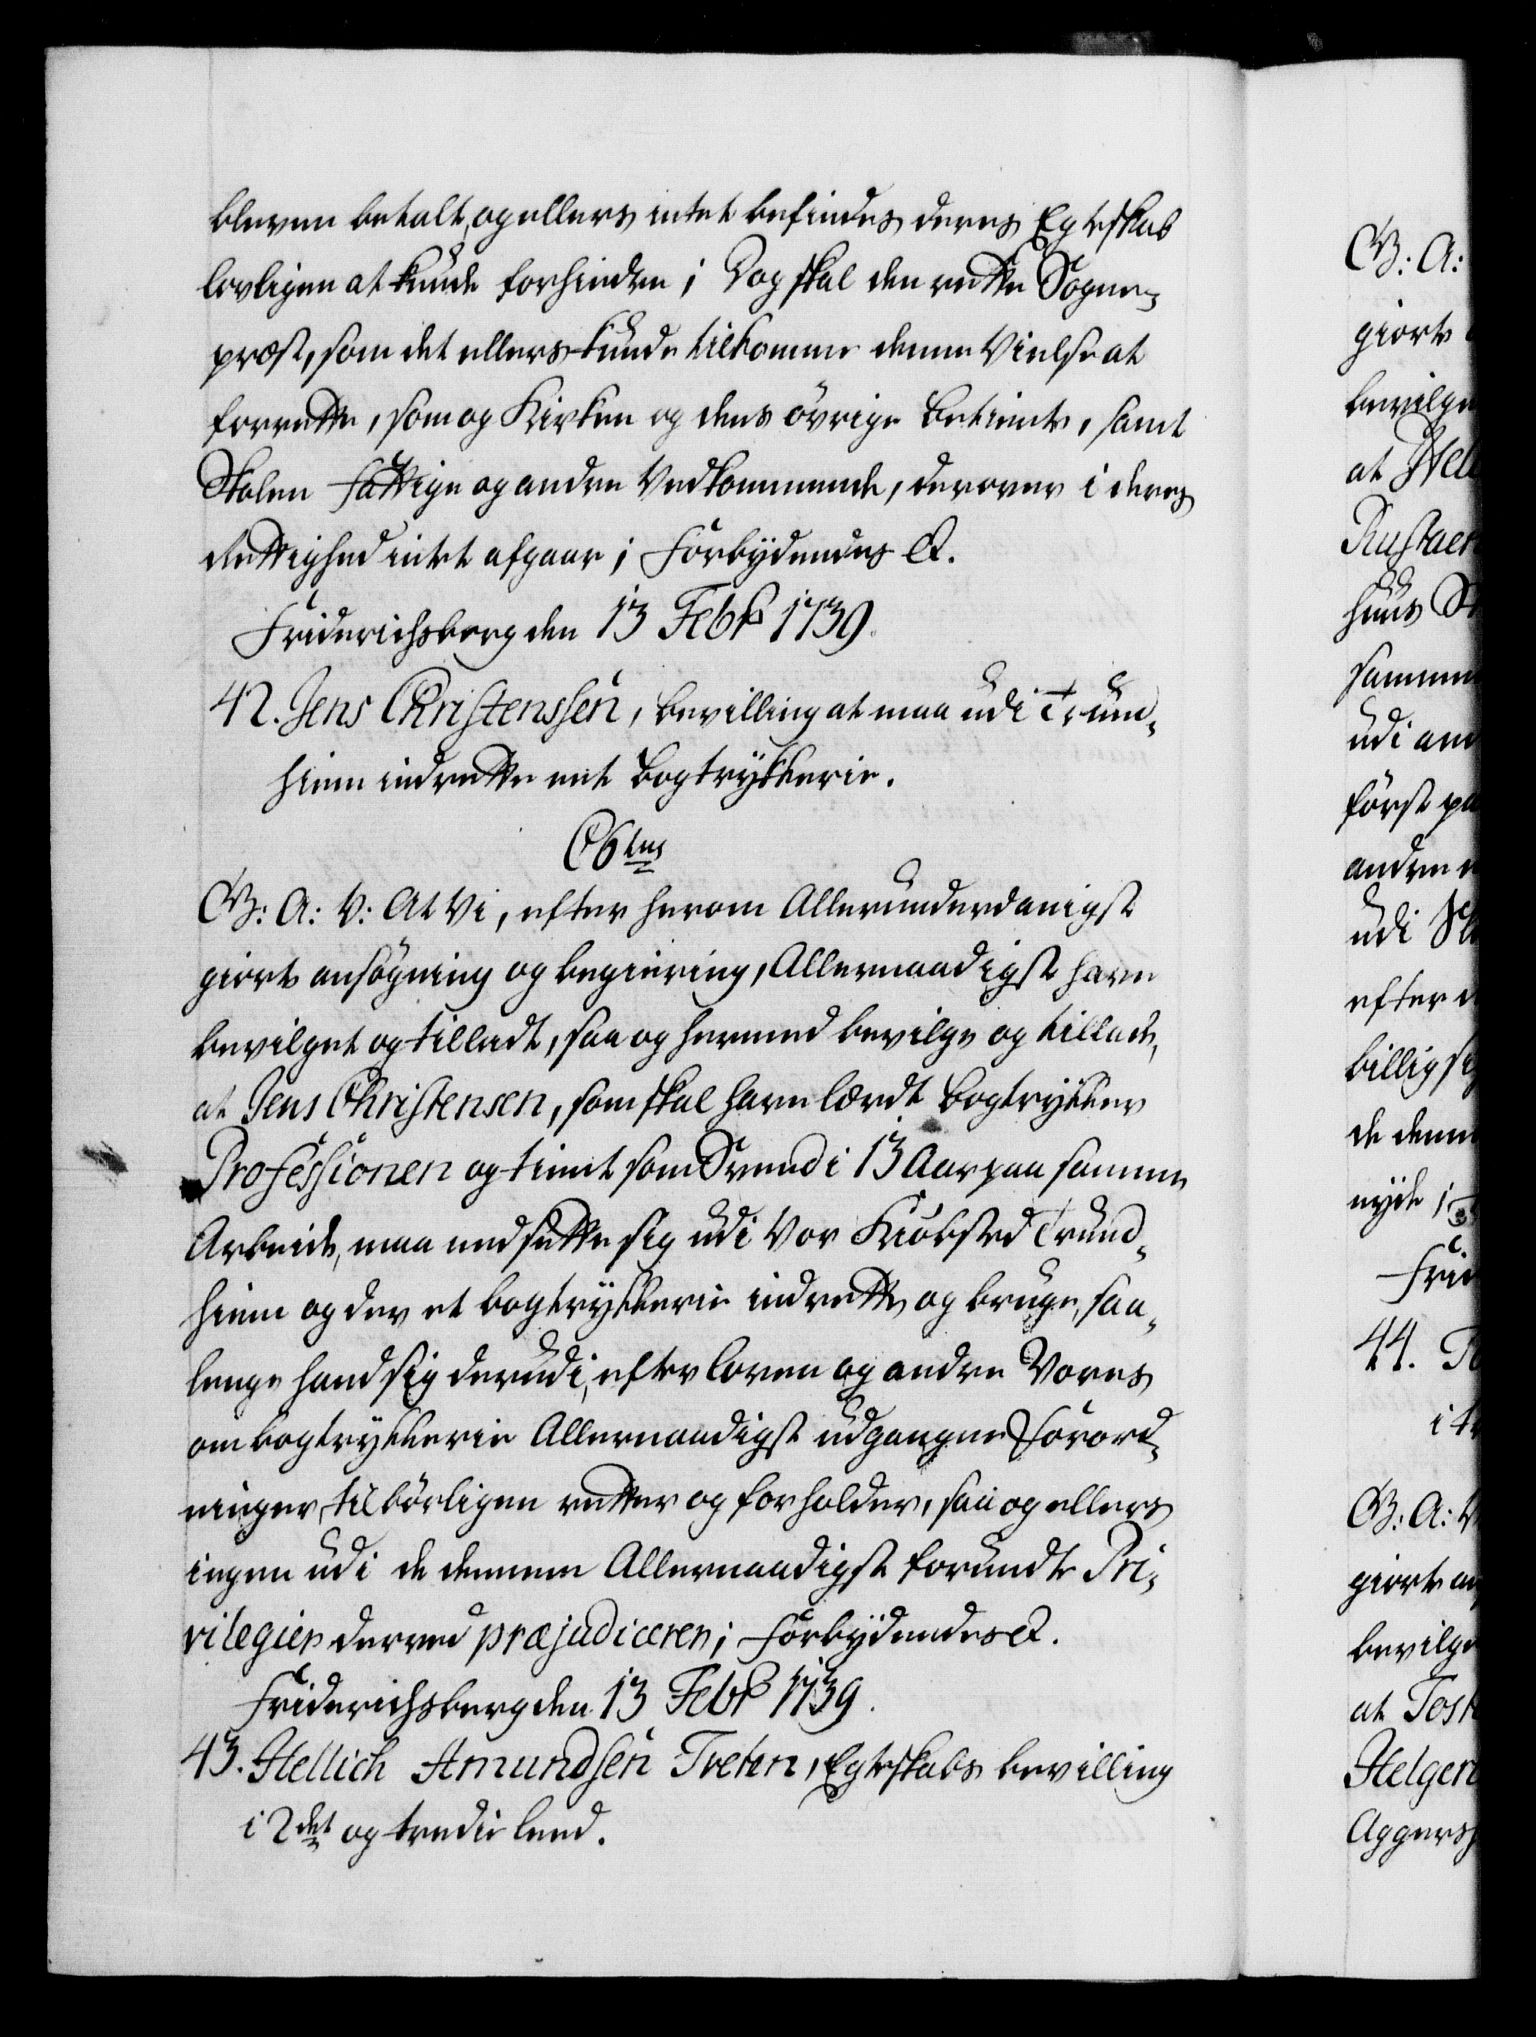 bleven betalt, og ellers intet befindes deres Egteskab
lovligen at kunde forhindre; Dog skal den rette Sogne-
præst, som det ellers kunde tilkomme denne Vielse at
forrette, som og Kirken og dens övrige betiente, samt
Skolen Fattige og andre Vedkommende, derover i deres
Rettighed intet afgaar; Forbydendes &.
Friderichsberg den 13 Febr 1739.
42. Jens Christenssen, bevilling at maa udi Trund-
hiem indrette eet Bogtrykkerie.
C6tus
G: A: V: At Vi, efter herom Allerunderdanigst
giorte ansögning og begiering, Allernaadigst have
bevilget og tilladt, saa og hermed bevilge og tillade,
at Jens Christensen, som skal have lærdt bogtrykker
Professionen og tient som Svend i 13 Aar paa samme
Arbeide, maa nedsette sig udi Vor Kiöbsted Trund-
hiem og der et bogtrykkerie indrette og bruge, saa-
lenge hand sig derudi, efter loven og andre Vores
om bogtrykkerie Allernaadigst udgangne Forord-
ninger, tilbörligen retter og forholder, saa og ellers
ingen udi de dennem Allernaadigst forundte Pri-
vilegier derved præjudicerer; Forbydendes &.
Friderichsberg den 13 Febr 1739.
43. Hellich Amundsen Treten, Egteskabs bevilling
i 2det og tredie leed.
G: A:
giorte
bevilge
at Hel
huus
samme
udi an
först pa
andre
udi
efter
billig
de denne
nyde;
Frid
44. To
i
G: A: V
giorte an
bevilge
at Tost
Helger
Aggers